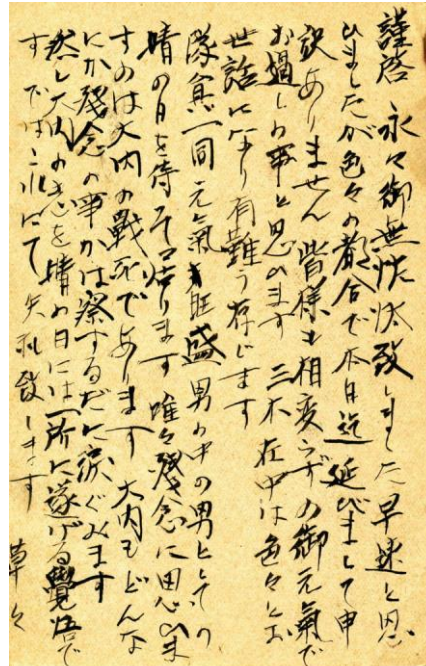 謹啓 永々御無沙汰致しました早速と思
ひましたが色々の都合で本日迄延びまして申
訳ありません 皆様も相変らずの御元氣で
お過しの事と思ひます 三木在中は色々とお
世話になり有難う存じます
隊員一同元氣旺盛男の中の男としての
晴の日を待って居ります 唯々残念に思ひま
すのは大内の戰死であります 大内もどんな
にか残念の事かは察するだに涙ぐみます
然し大内の志を晴の日には一所に遂げる覺悟で
すではこれにて失礼致します
草々